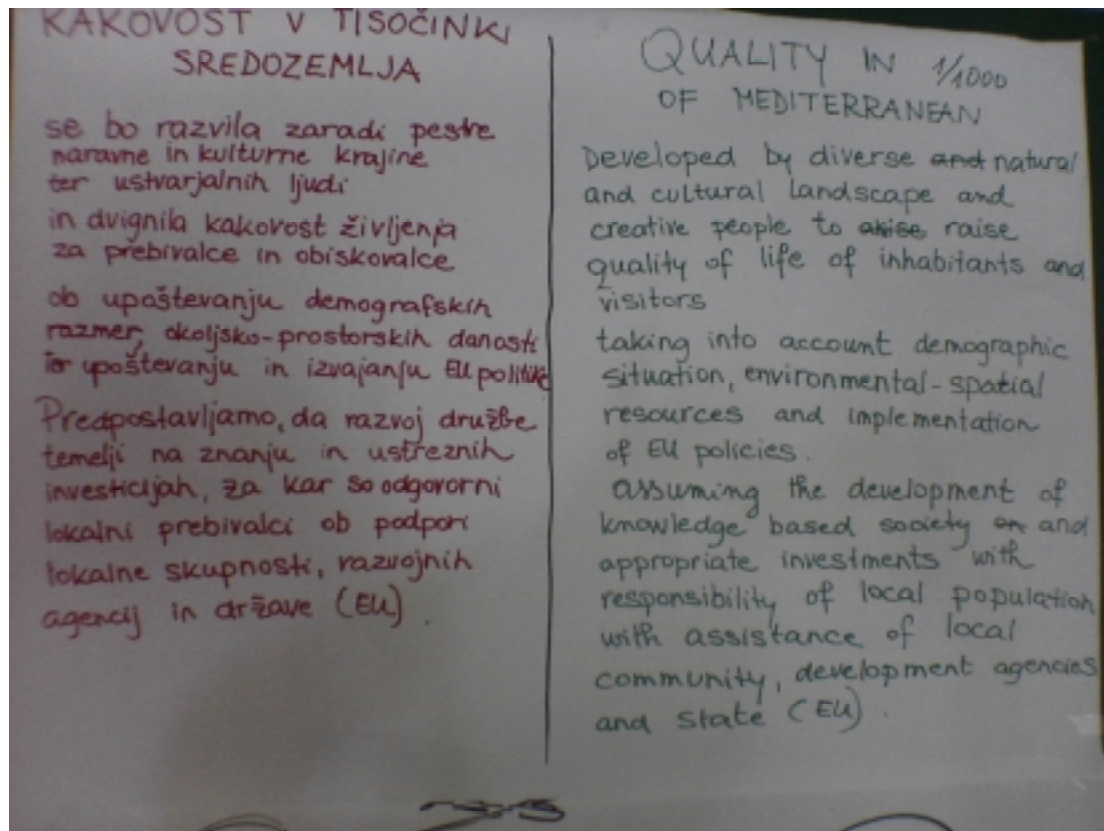 KAKOVOST V TISOČINKI
SREDOZEMLJA
se bo razvila zaradi pestre
naravne in kulturne krajine
ter ustvarjalnih ljudi
in dvignila kakovost življenja
za prebivalce in obiskovalce
ob upoštevanju demografskih
razmer, okoljsko-prostorskih danosti
ter upoštevanju in izvajanju EU politik
Predpostavljamo, da razvoj družbe
temelji na znanju in ustreznih
investicijah, za kar so odgovorni
lokalni prebivalci ob podpori
lokalne skupnosti, razvojnih
agencij in države (EU).
QUALITY IN 1/1000
OF MEDITERRANEAN
Developed by diverse and natural
and cultural landscape and
creative people to arise raise
quality of life of inhabitants and
visitors
taking into account demographic
situation, environmental-spatial
resources and implementation
of EU policies.
assuming the development of
knowledge based society on and
appropriate investments with
responsibility of local population
with assistance of local
community, development agencies
and state (EU).